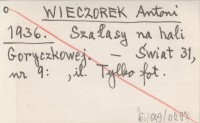 WIECZOREK Antoni
1936. Szałasy na hali
Goryczkowej. – Świat 31,
nr 9: , il. Tylko fot.